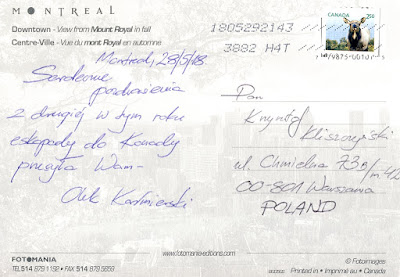 MONTREAL
Downtown - View from Mount Royal in fall
Centre-Ville - Vue du mont Royal en automne
1805292143
3882 H4T
CANADA
Montreal, 28/5/18
Serdeczne
pozdrowienia
z drugiej w tym roku
eskapady do Kanady
przesyła Wam-
Olek Kaźmierski
Pan
Krzysztof
Kliszczyński
ul. Chmielna 73B/m.42
00-801 Warszawa
POLAND
FOTOMANIA
TEL 514 • FAX 514
www.fotomania-editions.com
© Fotoimages
Printed in • Imprimé au • Canada